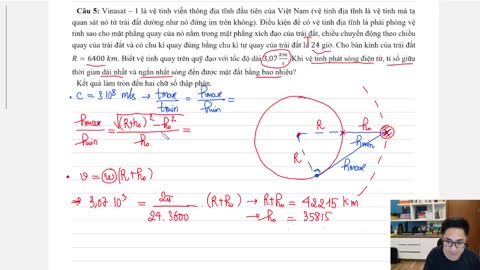 Câu 5: Vinasat – 1 là vệ tinh viễn thông địa tĩnh đầu tiên của Việt Nam (vệ tinh địa tĩnh là vệ tinh mà ta
quan sát nó từ trái đất dường như nó đứng im trên không). Điều kiện để có vệ tinh địa tĩnh là phải phóng vệ
tinh sao cho mặt phẳng quay của nó nằm trong mặt phẳng xích đạo của trái đất, chiều chuyển động theo chiều
quay của trái đất và có chu kì quay đúng bằng chu kì tự quay của trái đất là 24 giờ. Cho bán kính của trái đất
T
R = 6400 km. Biết vệ tinh quay trên quỹ đạo với tốc độ dài 3,07 km/s. Khi vệ tinh phát sóng điện từ, tỉ số giữa
thời gian dài nhất và ngắn nhất sóng đến được mặt đất bằng bao nhiêu?
Kết quả làm tròn đến hai chữ số thập phân.
• C = 3.10⁸ m/s → tmax/tmin = hmax/hmin =
hmax/hmin = √((R+h₀)² − h₀²)/h₀ =
R h₀ hmin
R hmax
• v = ω(R+h₀)
⇒ 3,07.10³ = 2π/24.3600 . (R+h₀) → R+h₀ = 42215 km
→ h₀ = 35815